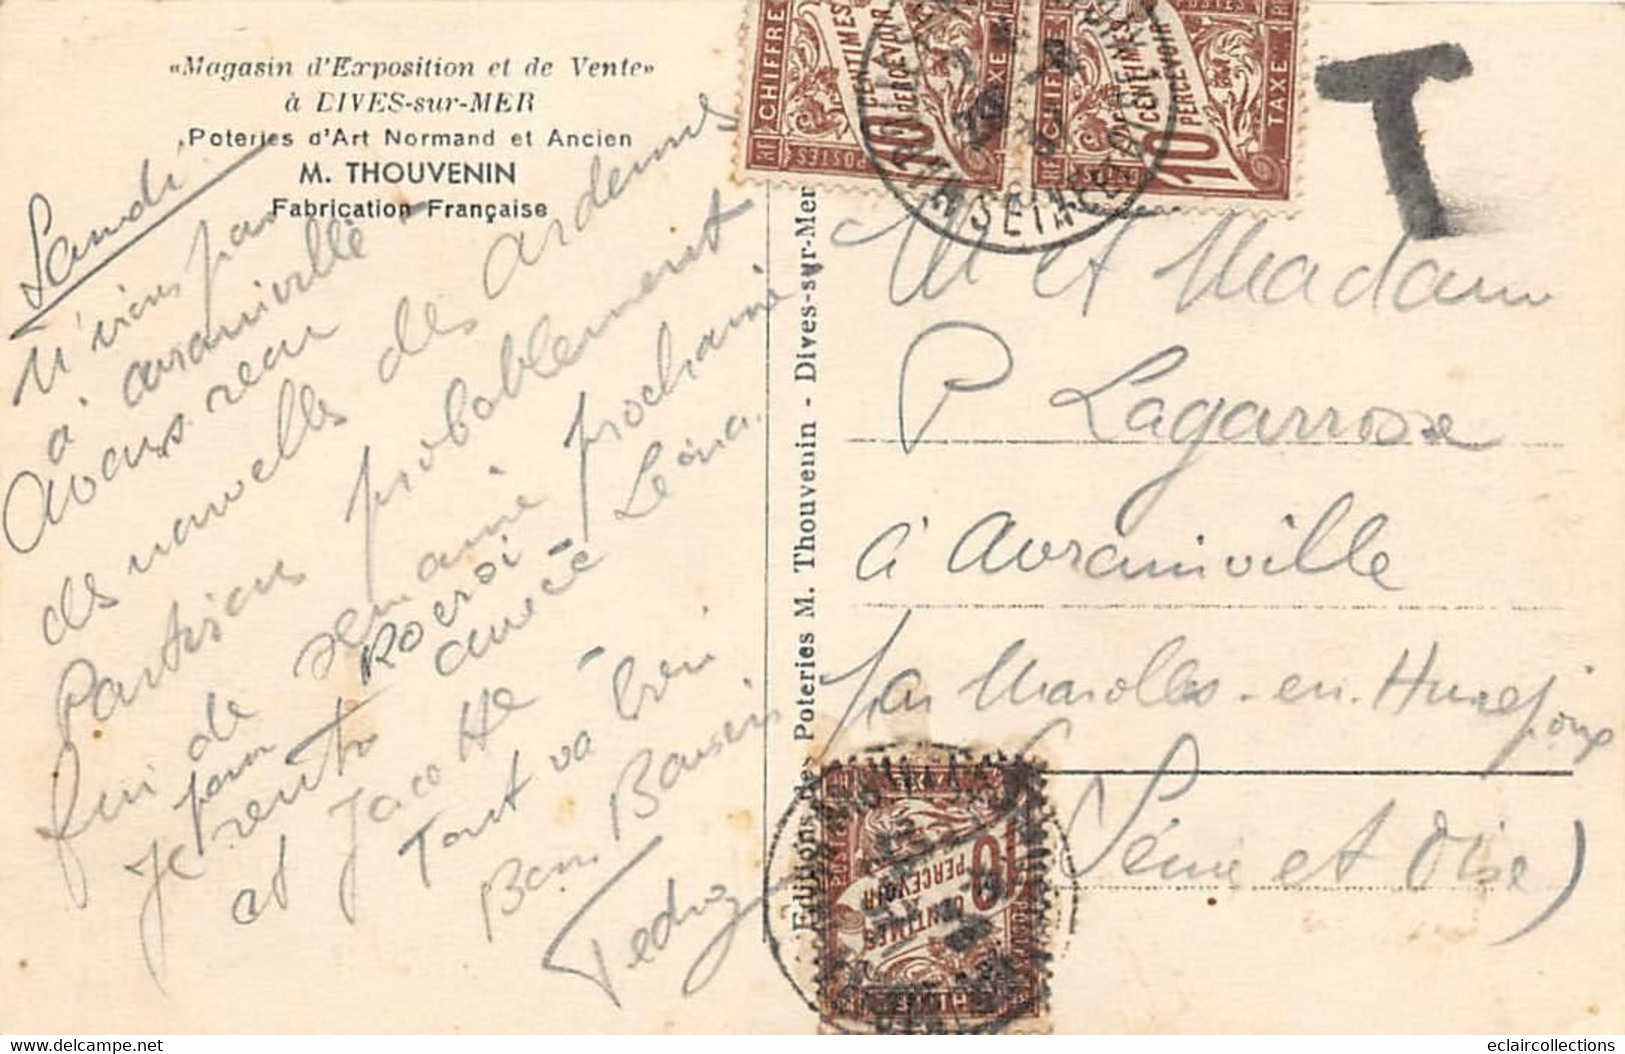 «Magasin d'Exposition et de Vente»
à DIVES-sur-MER
Poteries d'Art Normand et Ancien
M. THOUVENIN
Fabrication Française
Samdi
N'irons pas
à avrainville -
Avons reçu
des nouvelles des ardennes
Partirons probablement
fin de semaine prochaine
pour Rocroi
Je rentre avec Léona.
et Jacotte -
Tout va bien
Bons Baisers
Editions des Poteries M. Thouvenin - Dives-sur-Mer
CHIFFRE TAXE
10 CENTIMES
A PERCEVOIR
RF POSTES
CHIFFRE TAXE
10 CENTIMES
A PERCEVOIR
RF POSTES
SEINE ET OISE
T
M et Madame
P Lagarrosse
à Avrainville
par Marolles-en-Hurepoix
(Seine et Oise)
10 CENTIMES
A PERCEVOIR
eclaircollections.fr
eclaircollections